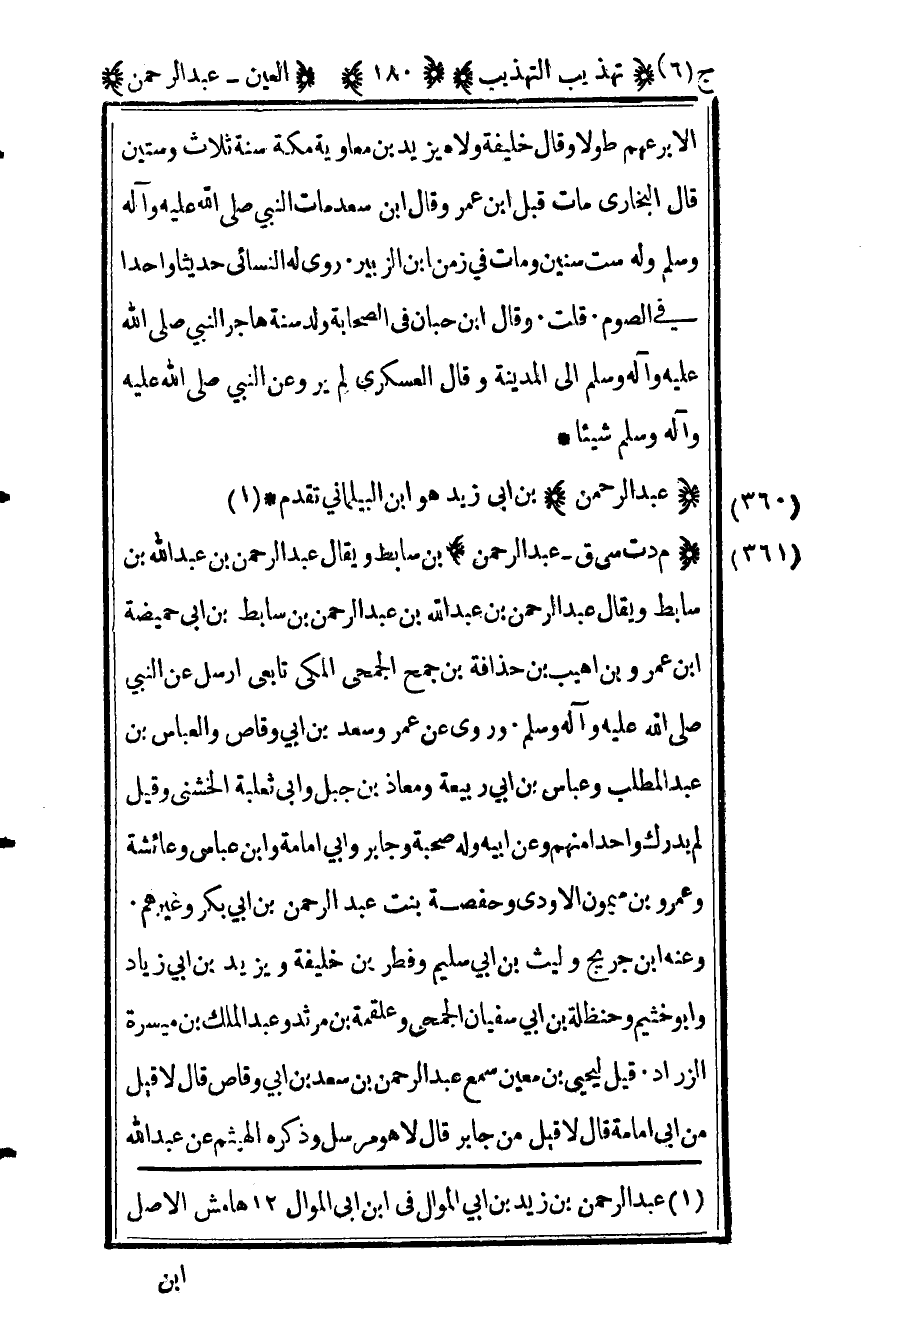 ج (٦) ﴿ تهذيب التهذيب ﴾ ﴿ ١٨٠ ﴾ ﴿ العين - عبد الرحمن ﴾
الا برعهم طولا وقال خليفة ولاه يزيد بن معاوية مكة سنة ثلاث وستين
قال البخارى مات قبل ابن عمر وقال ابن سعد مات النبي صلى الله عليه وآله
وسلم وله ست سنين ومات في زمن ابن الزبير · روى له النسائى حديثا واحدا
في الصوم · قلت · وقال ابن حبان فى الصحابة ولد سنة هاجر النبي صلى الله
عليه وآله وسلم الى المدينة وقال العسكرى لم يرو عن النبي صلى الله عليه
وآله وسلم شيئا *
(٣٦٠) ﴿ عبد الرحمن ﴾ بن ابى زيد هو ابن البيلماني تقدم * (١)
(٣٦١) ﴿ م د ت سى ق - عبد الرحمن ﴾ بن سابط ويقال عبد الرحمن بن عبد الله بن
سابط ويقال عبد الرحمن بن عبد الله بن عبد الرحمن بن سابط بن ابى حميضة
ابن عمرو بن اهيب بن حذافة بن جمح الجمحى المكى تابعى ارسل عن النبي
صلى الله عليه وآله وسلم · وروى عن عمر وسعد بن ابي وقاص والعباس بن
عبد المطلب وعباس بن ابي ربيعة ومعاذ بن جبل وابى ثعلبة الخشنى وقيل
لم يدرك واحدا منهم وعن ابيه وله صحبة وجابر وابي امامة وابن عباس وعائشة
وعمرو بن ميمون الاودى وحفصة بنت عبد الرحمن بن ابي بكر وغيرهم ·
وعنه ابن جريج وليث بن ابي سليم وفطر بن خليفة ويزيد بن ابي زياد
وابو خثيم وحنظلة بن ابي سفيان الجمحى وعلقمة بن مرثد وعبد الملك بن ميسرة
الزراد · قيل ليحيى بن معين سمع عبد الرحمن بن سعد بن ابي وقاص قال لا قيل
من ابى امامة قال لا قيل من جابر قال لا هو مرسل وذكره الهيثم عن عبد الله
(١) عبد الرحمن بن زيد بن ابي الموال فى ابن ابى الموال ١٢ هامش الاصل
ابن